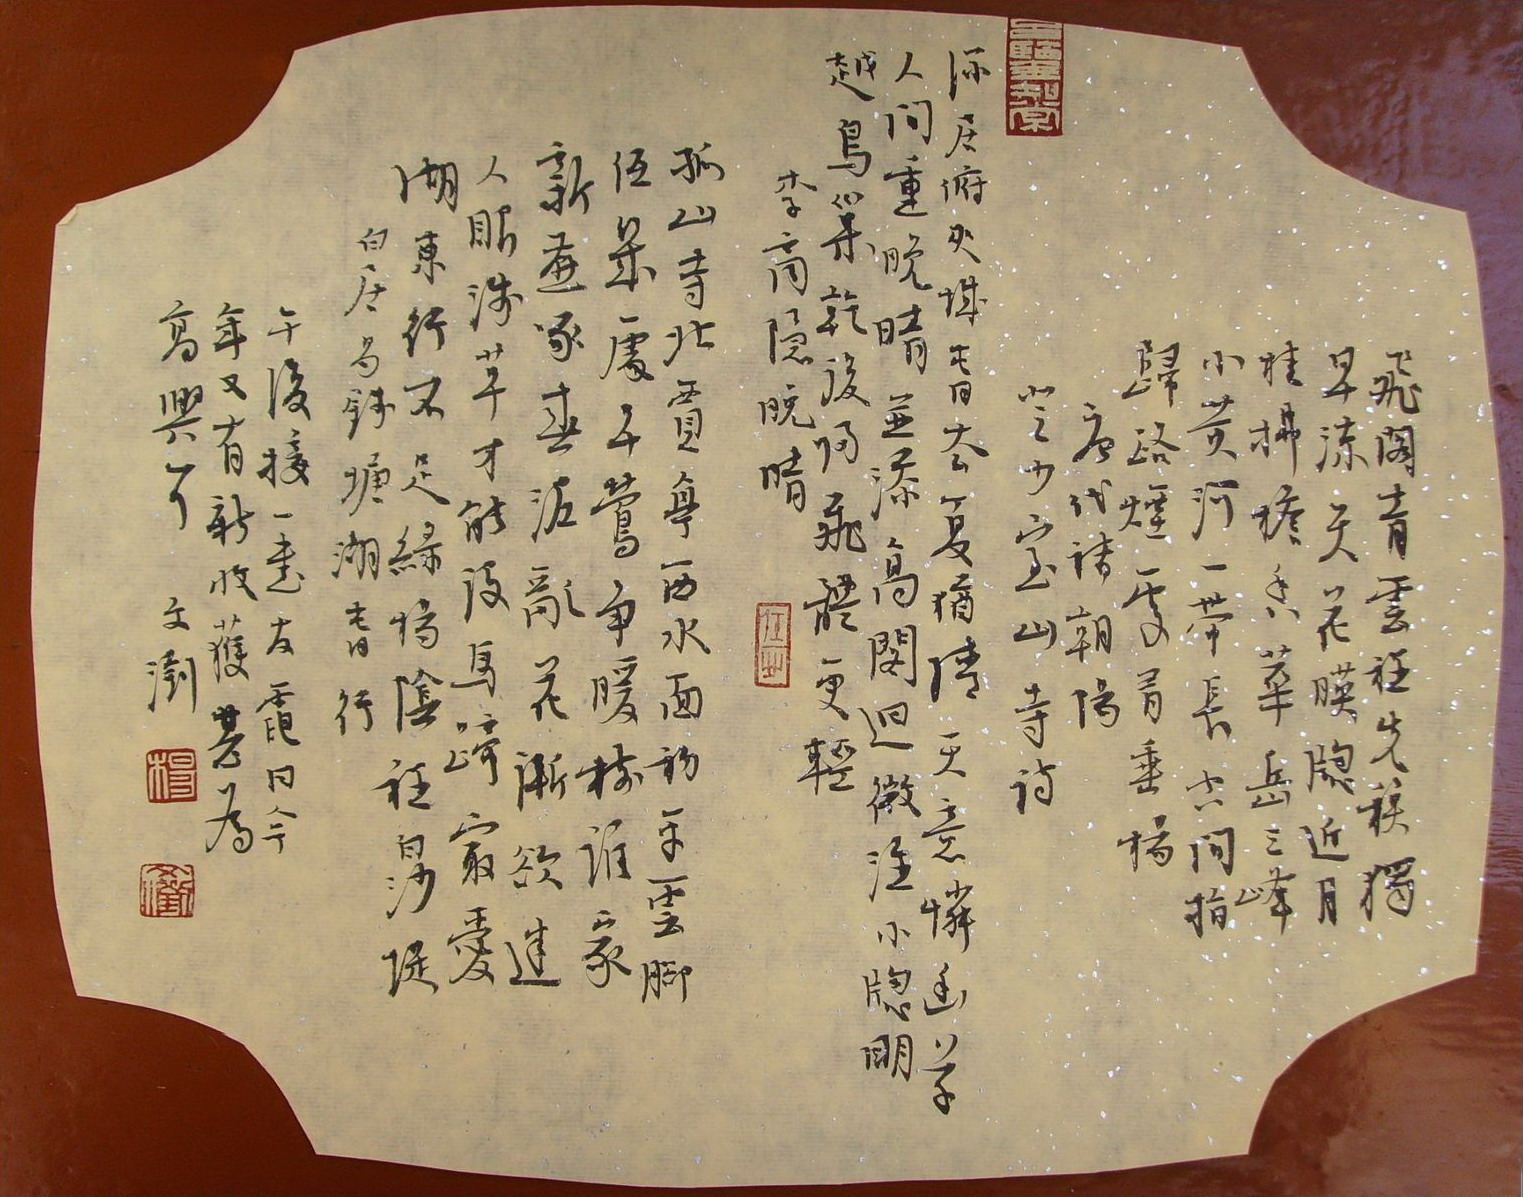 飛閣青雲裡先秋獨
早涼天花暎牕近月
桂拂檐香華岳三峰
小黃河一帶長空間指
歸路煙處有垂楊
唐代褚朝陽
登少室山寺詩
深居俯夾城春去夏猶清天意憐幽草
人間重晚晴並添高閣迥微注小牕明
越鳥巢乾後歸飛體更輕
李商隱晚晴
孤山寺北賈亭西水面初平雲腳
低幾處早鶯爭暖樹誰家
新燕啄春泥亂花漸欲迷
人眼淺草才能沒馬蹄最愛
湖東行不足綠楊陰裡白沙堤
白居易錢塘湖春行
午後接一老友電曰今
年又有新收獲甚為
高興 文澍
楊
文澍